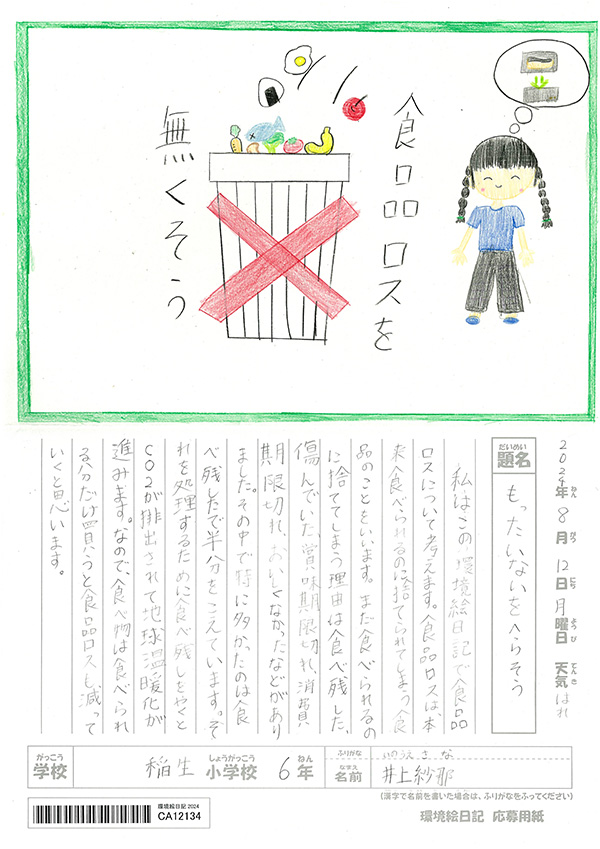 食品ロスを
無くそう
2024年 8月 12日 月曜日 天気 はれ
ねん がつ にち ようび てんき
だいめい
題名 もったいないをへらそう
私はこの環境絵日記で食品
ロスについて考えます。食品ロスは、本
来食べられるのに捨てられてしまう食
品のことをいいます。まだ食べられるの
に捨ててしまう理由は食べ残した、
傷んでいた、賞味期限切れ、消費
期限切れ、おいしくなかったなどがあり
ました。その中で特に多かったのは食
べ残したで半分をこえています。そ
れを処理するために食べ残しをやくと
CO2が排出されて地球温暖化が
進みます。なので、食べ物は食べられ
る分だけ買うと食品ロスも減って
いくと思います。
がっこう しょうがっこう ねん
学校 稲生 小学校 6年
ふりがな いのうえ さな
なまえ
名前 井上紗那
(漢字で名前を書いた場合は、ふりがなをふってください)
環境絵日記 2024
CA12134
環境絵日記 応募用紙